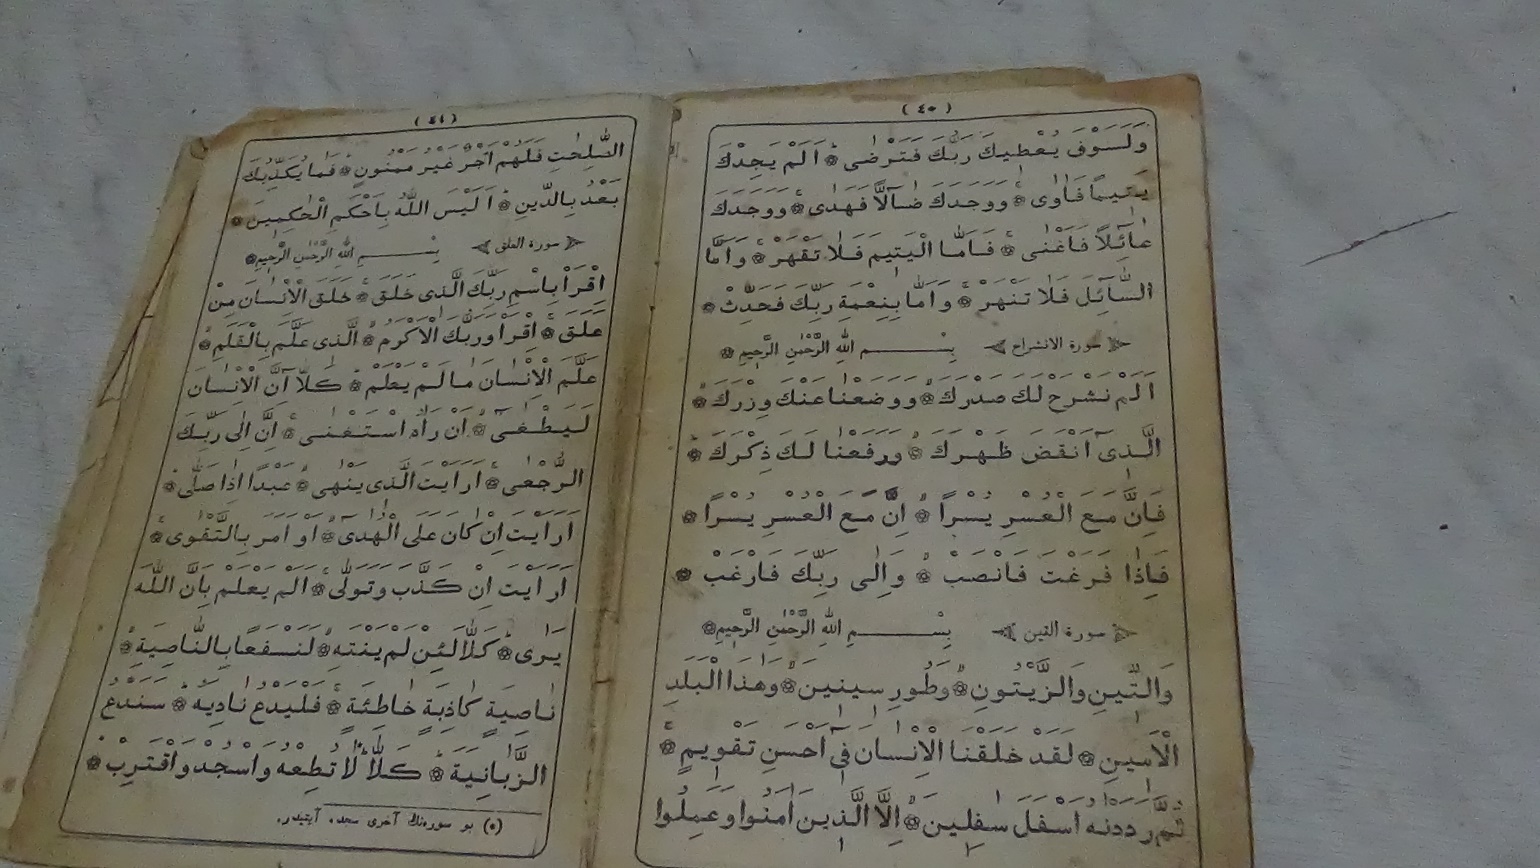 (٤٥)
وَلَسَوْفَ يُعْطيكَ رَبُّكَ فَتَرْضٰى ۞ اَلَمْ يَجِدْكَ
يَتيمًا فَاٰوٰى ۞ وَوَجَدَكَ ضَآلًّا فَهَدٰى ۞ وَوَجَدَكَ
عَآئِلًا فَاَغْنٰى ۞ فَاَمَّا الْيَتيمَ فَلَا تَقْهَرْ ۞ وَاَمَّا
السَّآئِلَ فَلَا تَنْهَرْ ۞ وَاَمَّا بِنِعْمَةِ رَبِّكَ فَحَدِّثْ ۞
سورة الانشراح بِسْمِ اللهِ الرَّحْمٰنِ الرَّحيمِ ۞
اَلَمْ نَشْرَحْ لَكَ صَدْرَكَ ۞ وَوَضَعْنَا عَنْكَ وِزْرَكَ ۞
الَّذى اَنْقَضَ ظَهْرَكَ ۞ وَرَفَعْنَا لَكَ ذِكْرَكَ ۞
فَاِنَّ مَعَ الْعُسْرِ يُسْرًا ۞ اِنَّ مَعَ الْعُسْرِ يُسْرًا ۞
فَاِذَا فَرَغْتَ فَانْصَبْ ۞ وَاِلٰى رَبِّكَ فَارْغَبْ ۞
سورة التين بِسْمِ اللهِ الرَّحْمٰنِ الرَّحيمِ ۞
وَالتّينِ وَالزَّيْتُونِ ۞ وَطُورِ سينينَ ۞ وَهٰذَا الْبَلَدِ
الْاَمينِ ۞ لَقَدْ خَلَقْنَا الْاِنْسَانَ فى اَحْسَنِ تَقْويمٍ ۞
ثُمَّ رَدَدْنٰهُ اَسْفَلَ سٰفِلينَ ۞ اِلَّا الَّذينَ اٰمَنُوا وَعَمِلُوا
(٤٤)
الصّٰلِحٰتِ فَلَهُمْ اَجْرٌ غَيْرُ مَمْنُونٍ ۞ فَمَا يُكَذِّبُكَ
بَعْدُ بِالدّينِ ۞ اَلَيْسَ اللّٰهُ بِاَحْكَمِ الْحٰكِمينَ ۞
سورة العلق بِسْمِ اللهِ الرَّحْمٰنِ الرَّحيمِ ۞
اِقْرَاْ بِاسْمِ رَبِّكَ الَّذى خَلَقَ ۞ خَلَقَ الْاِنْسَانَ مِنْ
عَلَقٍ ۞ اِقْرَاْ وَرَبُّكَ الْاَكْرَمُ ۞ اَلَّذى عَلَّمَ بِالْقَلَمِ ۞
عَلَّمَ الْاِنْسَانَ مَا لَمْ يَعْلَمْ ۞ كَلَّا اِنَّ الْاِنْسَانَ
لَيَطْغٰى ۞ اَنْ رَاٰهُ اسْتَغْنٰى ۞ اِنَّ اِلٰى رَبِّكَ
الرُّجْعٰى ۞ اَرَاَيْتَ الَّذى يَنْهٰى ۞ عَبْدًا اِذَا صَلّٰى ۞
اَرَاَيْتَ اِنْ كَانَ عَلَى الْهُدٰى ۞ اَوْ اَمَرَ بِالتَّقْوٰى ۞
اَرَاَيْتَ اِنْ كَذَّبَ وَتَوَلّٰى ۞ اَلَمْ يَعْلَمْ بِاَنَّ اللّٰهَ
يَرٰى ۞ كَلَّا لَئِنْ لَمْ يَنْتَهِ ۞ لَنَسْفَعًا بِالنَّاصِيَةِ ۞
نَاصِيَةٍ كَاذِبَةٍ خَاطِئَةٍ ۞ فَلْيَدْعُ نَادِيَهُ ۞ سَنَدْعُ
الزَّبَانِيَةَ ۞ كَلَّا لَا تُطِعْهُ وَاسْجُدْ وَاقْتَرِبْ ۞
(٥) بو سوره‌نك آخرى سجده آيتيدر.